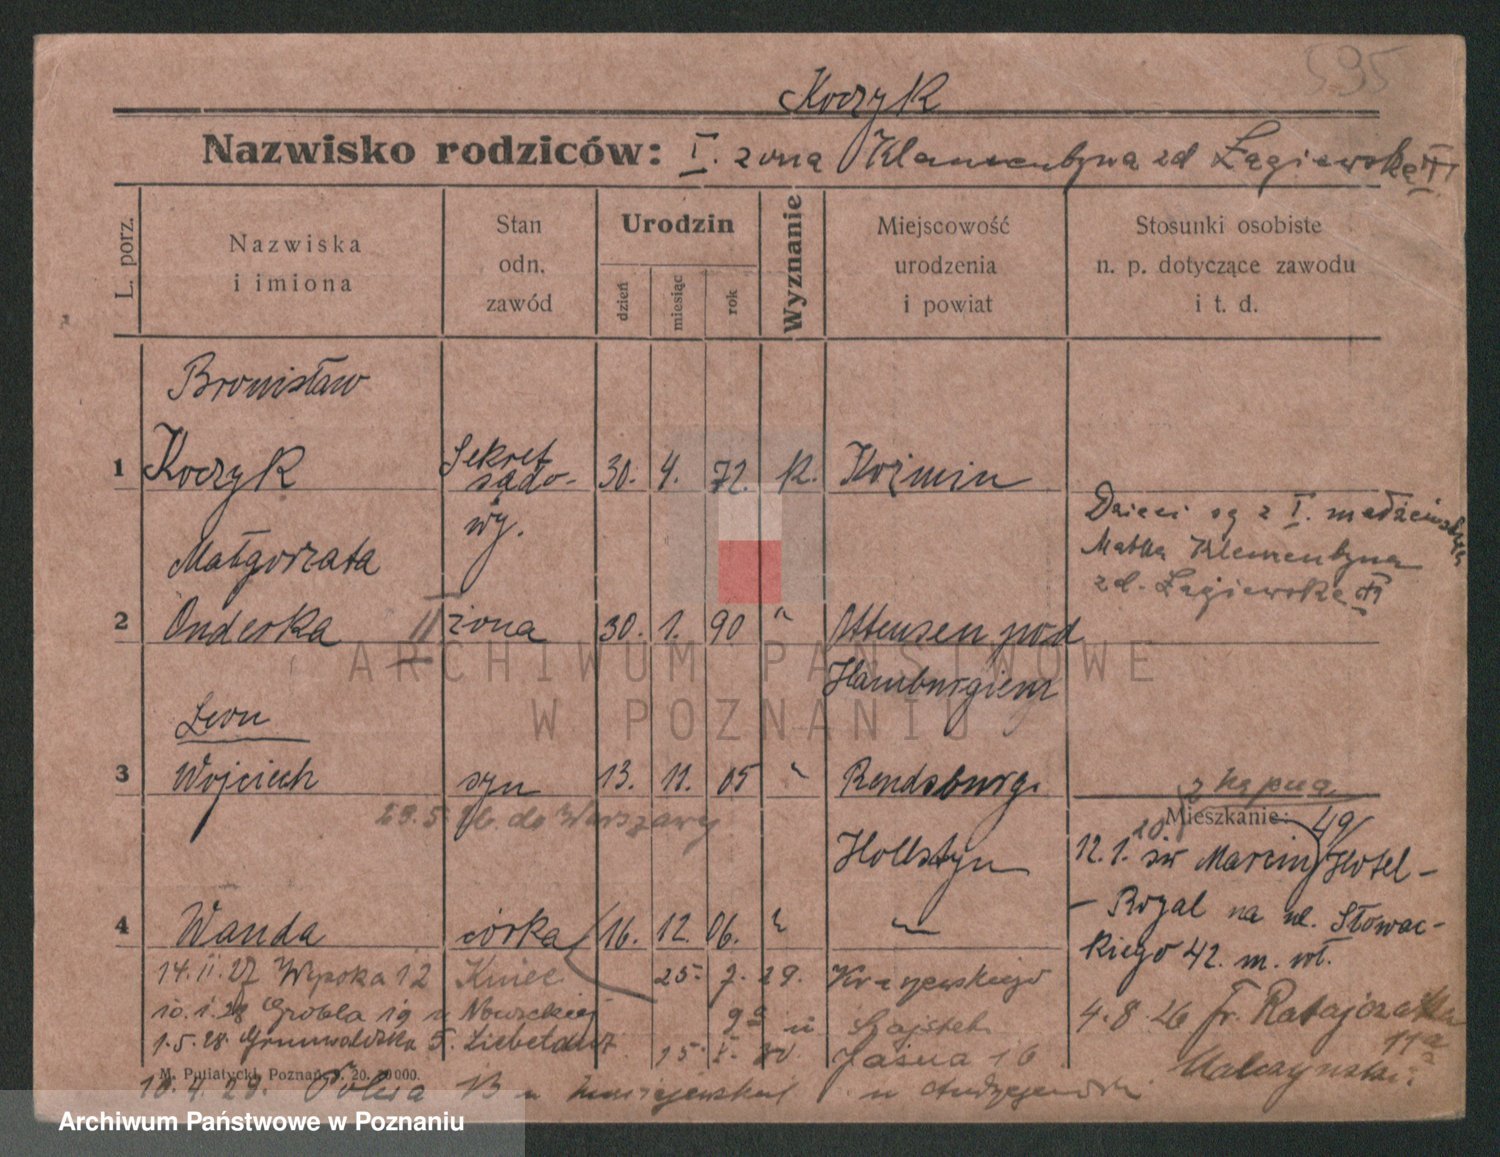 595
Koczyk
Nazwisko rodziców: I. żona Klementyna zd Łagiewska
L. porz.
Nazwiska
i imiona
Stan
odn.
zawód
Urodzin
dzień
miesiąc
rok
Wyznanie
Miejscowość
urodzenia
i powiat
Stosunki osobiste
n. p. dotyczące zawodu
i t. d.
Bronisław
1 Koczyk Sekret sądo- 30. 4. 72. k. Koźmin
wy.
Dzieci są z I. małżeństwa
Matka Klementyna
zd. Łagiewska
Małgorzata
2 Onderka II żona 30. 1. 90 " Ottensen pod
Hamburgiem
Leon
3 Wojciech syn 13. 11. 05 " Rendsburg.
29.5. 26. do Warszawy
Hollstyn
Mieszkanie: 49
12.1. św Marcin Hotel-
- Royal na ul. Słowac-
kiego 42. m. wł.
4 Wanda córka 16. 12. 06. " "
14.11.27 Wysoka 12 25. 7. 29. Kraszewskiego
10.1.28 Grobla 19 u
1.5.28 Grunwaldzka 5. 15. X. 30 Jasna 16
4.8.26 Fr. Ratajczaka
11a
M. Putiatycki, Poznań, 9. 20. 20000.
10.4.29. 13 u
ARCHIWUM PAŃSTWOWE
W POZNANIU
Archiwum Państwowe w Poznaniu